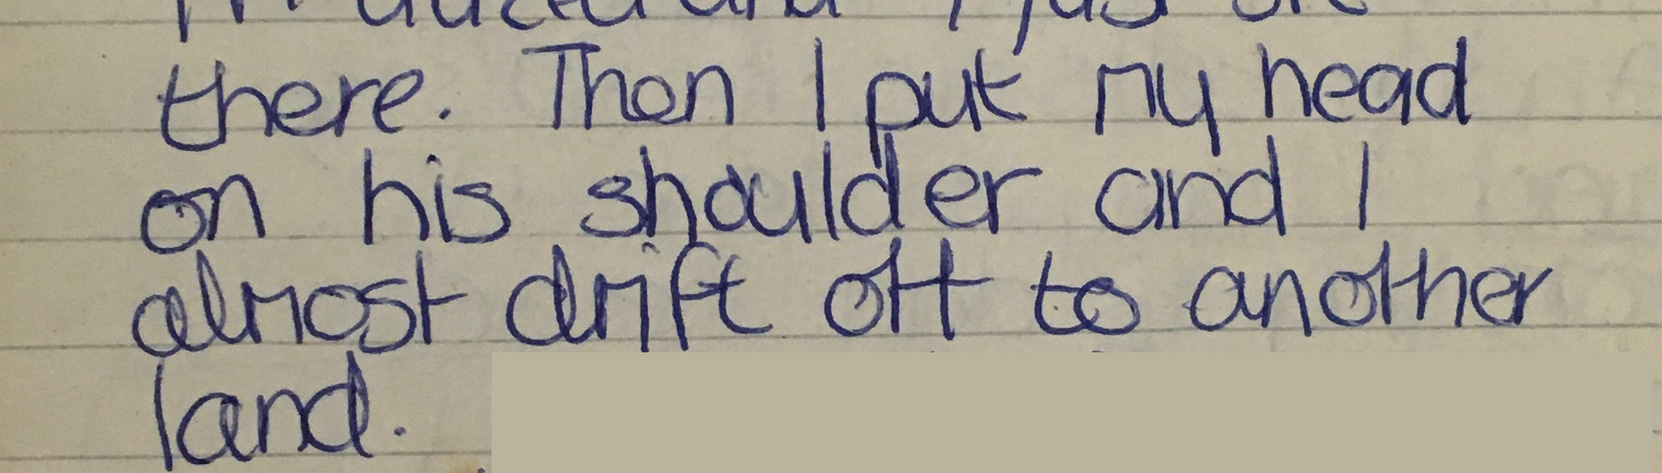 there. Then I put my head
on his shoulder and I
almost drift off to another
land.